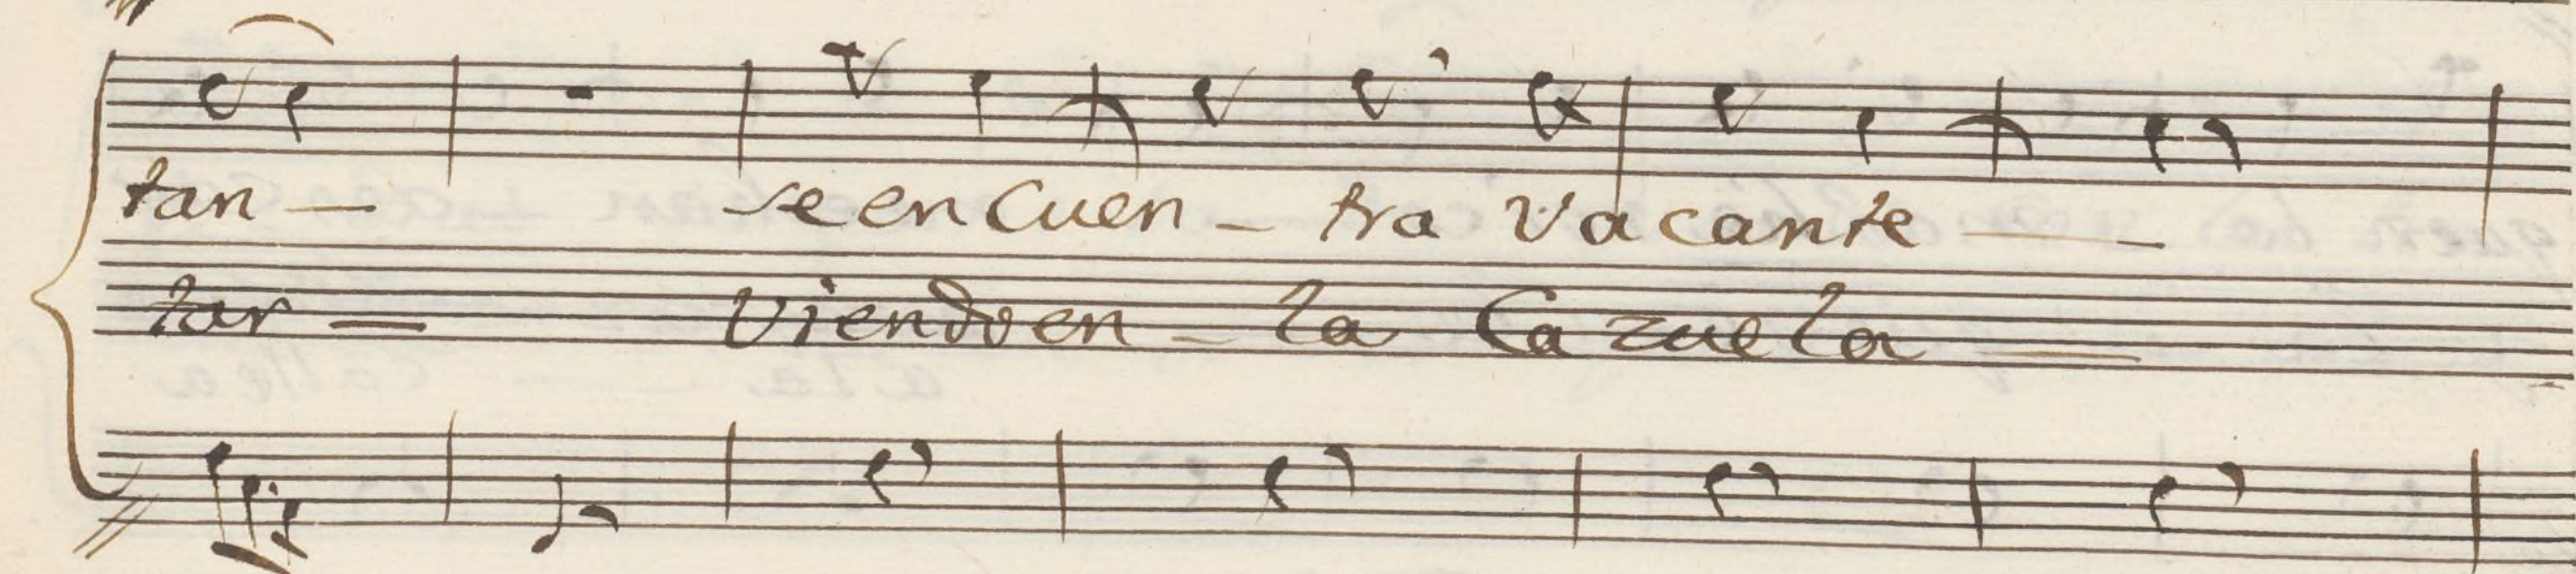 tan — se en Cuen - tra Vacante —
tar — viendo en - la Cazuela —